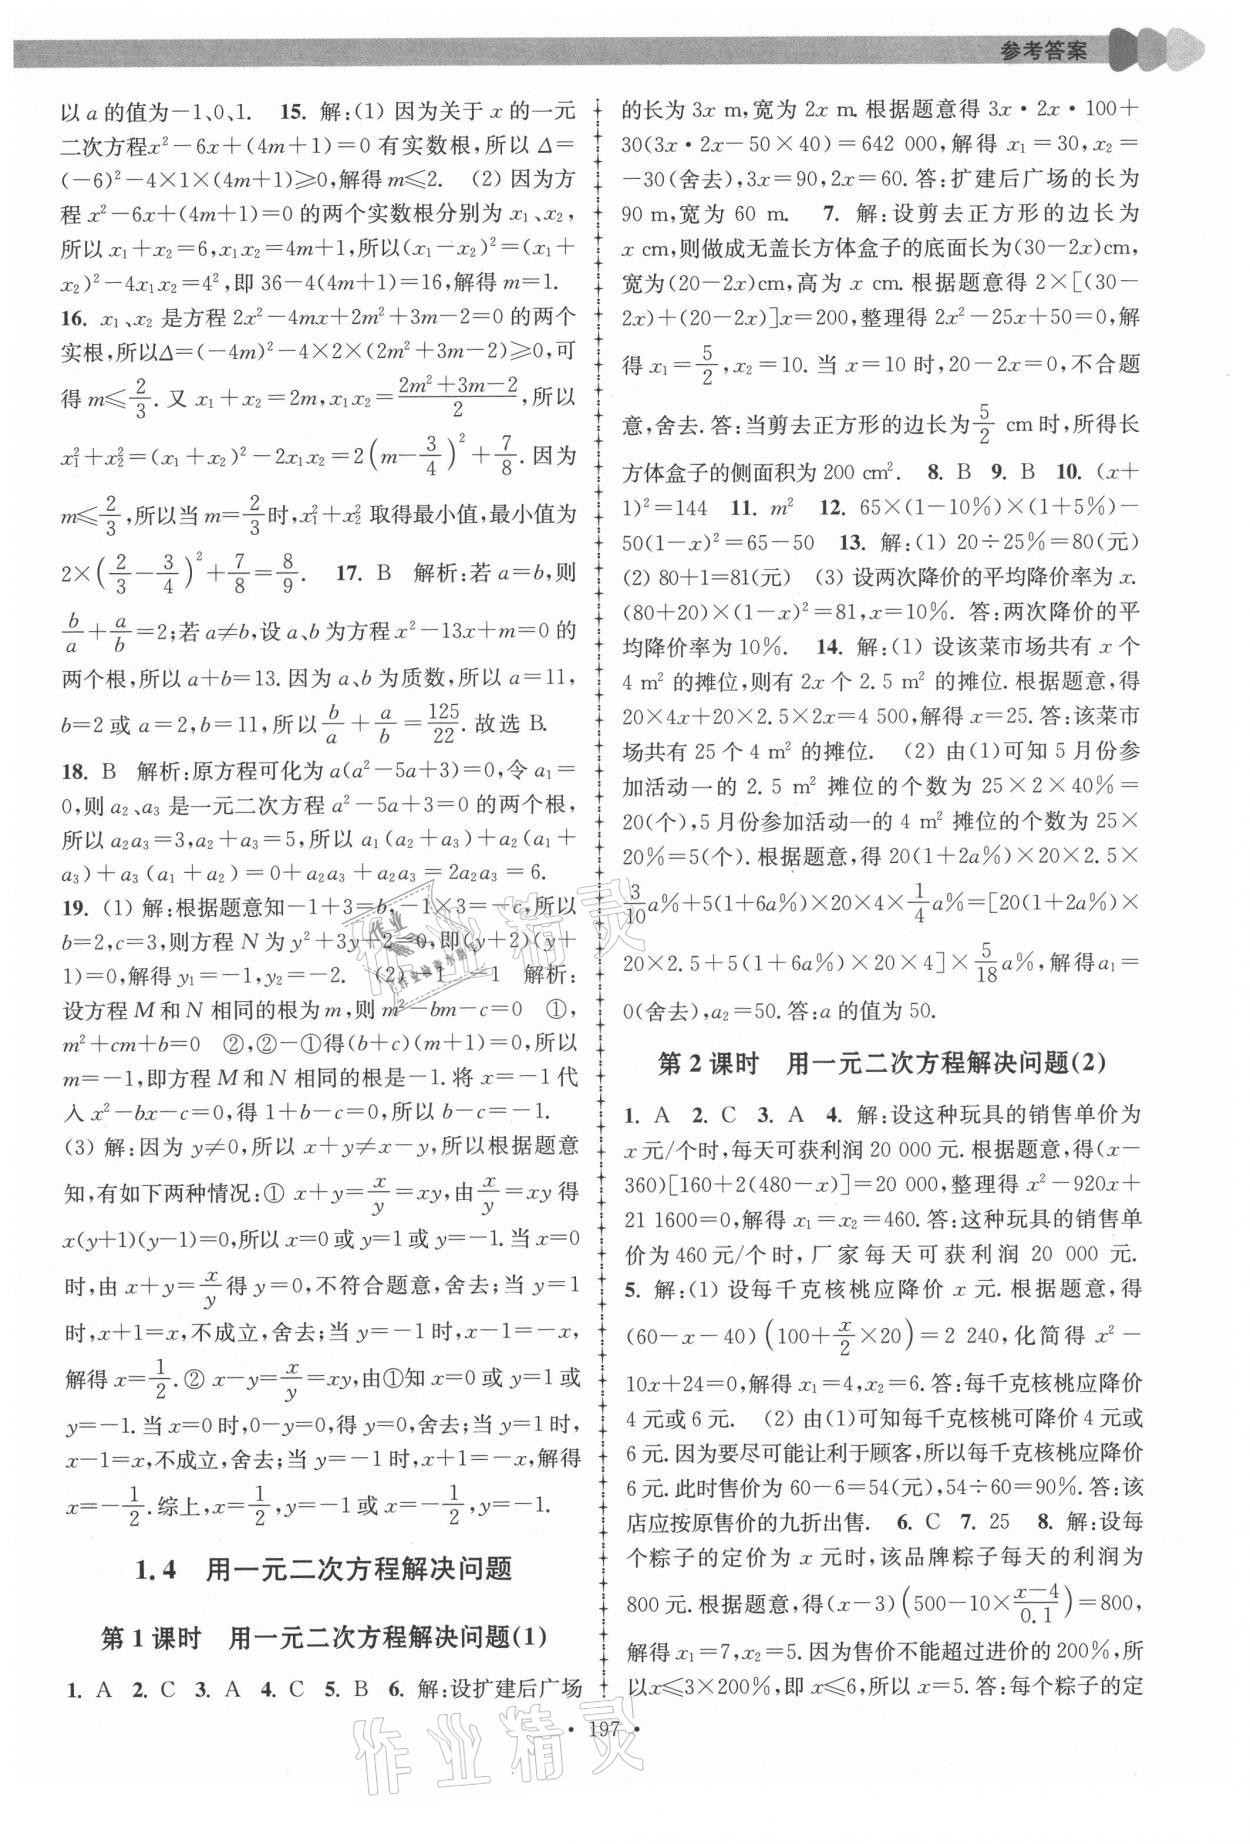 参考答案
以 a 的值为－1、0、1. 15. 解:(1) 因为关于 x 的一元
二次方程x²－6x＋(4m＋1)＝0 有实数根,所以 Δ＝
(－6)²－4×1×(4m＋1)≥0,解得 m≤2. (2) 因为方
程 x²－6x＋(4m＋1)＝0 的两个实数根分别为 x₁、x₂,
所以 x₁＋x₂＝6,x₁x₂＝4m＋1,所以(x₁－x₂)²＝(x₁＋
x₂)²－4x₁x₂＝4²,即 36－4(4m＋1)＝16,解得 m＝1.
16. x₁、x₂ 是方程 2x²－4mx＋2m²＋3m－2＝0 的两个
实根,所以Δ＝(－4m)²－4×2×(2m²＋3m－2)≥0,可
得 m≤2/3. 又 x₁＋x₂＝2m,x₁x₂＝(2m²＋3m－2)/2,所以
x₁²＋x₂²＝(x₁＋x₂)²－2x₁x₂＝2(m－3/4)²＋7/8. 因为
m≤2/3,所以当 m＝2/3时,x₁²＋x₂² 取得最小值,最小值为
2×(2/3－3/4)²＋7/8＝8/9. 17. B 解析:若 a＝b,则
b/a＋a/b＝2;若 a≠b,设 a、b 为方程 x²－13x＋m＝0 的
两个根,所以 a＋b＝13. 因为 a、b 为质数,所以 a＝11,
b＝2 或 a＝2,b＝11,所以b/a＋a/b＝125/22. 故选 B.
18. B 解析:原方程可化为 a(a²－5a＋3)＝0,令 a₁＝
0,则 a₂、a₃ 是一元二次方程 a²－5a＋3＝0 的两个根,
所以 a₂a₃＝3,a₂＋a₃＝5,所以 a₁(a₂＋a₃)＋a₂(a₁＋
a₃)＋a₃(a₁＋a₂)＝0＋a₂a₃＋a₂a₃＝2a₂a₃＝6.
19. (1) 解:根据题意知－1＋3＝b,－1×3＝－c,所以
b＝2,c＝3,则方程 N 为 y²＋3y＋2＝0,即(y＋2)(y＋
1)＝0,解得 y₁＝－1,y₂＝－2. (2) －1 －1 解析:
设方程 M 和 N 相同的根为 m,则 m²－bm－c＝0 ①,
m²＋cm＋b＝0 ②,②－①得(b＋c)(m＋1)＝0,所以
m＝－1,即方程 M 和 N 相同的根是－1. 将 x＝－1 代
入 x²－bx－c＝0,得 1＋b－c＝0,所以 b－c＝－1.
(3) 解:因为 y≠0,所以 x＋y≠x－y,所以根据题意
知,有如下两种情况:① x＋y＝x/y＝xy,由x/y＝xy 得
x(y＋1)(y－1)＝0,所以 x＝0 或 y＝1 或 y＝－1. 当 x＝0
时,由 x＋y＝x/y得 y＝0,不符合题意,舍去;当 y＝1
时,x＋1＝x,不成立,舍去;当 y＝－1 时,x－1＝－x,
解得 x＝1/2. ② x－y＝x/y＝xy,由①知 x＝0 或 y＝1 或
y＝－1. 当 x＝0 时,0－y＝0,得 y＝0,舍去;当 y＝1 时,
x－1＝x,不成立,舍去;当 y＝－1 时,x＋1＝－x,解得
x＝－1/2. 综上,x＝1/2,y＝－1 或 x＝－1/2,y＝－1.
1.4 用一元二次方程解决问题
第 1 课时 用一元二次方程解决问题(1)
1. A 2. C 3. A 4. C 5. B 6. 解:设扩建后广场
的长为 3x m,宽为 2x m. 根据题意得 3x·2x·100＋
30(3x·2x－50×40)＝642 000,解得 x₁＝30,x₂＝
－30(舍去),3x＝90,2x＝60. 答:扩建后广场的长为
90 m,宽为 60 m. 7. 解:设剪去正方形的边长为
x cm,则做成无盖长方体盒子的底面长为(30－2x)cm,
宽为(20－2x)cm,高为 x cm. 根据题意得 2×[(30－
2x)＋(20－2x)]x＝200,整理得 2x²－25x＋50＝0,解
得 x₁＝5/2,x₂＝10. 当 x＝10 时,20－2x＝0,不合题
意,舍去. 答:当剪去正方形的边长为5/2 cm时,所得长
方体盒子的侧面积为 200 cm². 8. B 9. B 10. (x＋
1)²＝144 11. m² 12. 65×(1－10%)×(1＋5%)－
50(1－x)²＝65－50 13. 解:(1) 20÷25%＝80(元)
(2) 80＋1＝81(元) (3) 设两次降价的平均降价率为 x.
(80＋20)×(1－x)²＝81,x＝10%. 答:两次降价的平
均降价率为 10%. 14. 解:(1) 设该菜市场共有 x 个
4 m² 的摊位,则有 2x 个 2.5 m² 的摊位. 根据题意,得
20×4x＋20×2.5×2x＝4 500,解得 x＝25. 答:该菜市
场共有 25 个 4 m² 的摊位. (2) 由(1)可知 5 月份参
加活动一的 2.5 m² 摊位的个数为 25×2×40%＝
20(个),5 月份参加活动一的 4 m² 摊位的个数为 25×
20%＝5(个). 根据题意,得 20(1＋2a%)×20×2.5×
3/10a%＋5(1＋6a%)×20×4×1/4a%＝[20(1＋2a%)×
20×2.5＋5(1＋6a%)×20×4]×5/18a%,解得a₁＝
0(舍去),a₂＝50. 答:a 的值为 50.
第 2 课时 用一元二次方程解决问题(2)
1. A 2. C 3. A 4. 解:设这种玩具的销售单价为
x 元/个时,每天可获利润 20 000 元. 根据题意,得(x－
360)[160＋2(480－x)]＝20 000,整理得 x²－920x＋
21 1600＝0,解得 x₁＝x₂＝460. 答:这种玩具的销售单
价为 460 元/个时,厂家每天可获利润 20 000 元.
5. 解:(1) 设每千克核桃应降价 x 元. 根据题意,得
(60－x－40)(100＋x/2×20)＝2 240,化简得 x²－
10x＋24＝0,解得 x₁＝4,x₂＝6. 答:每千克核桃应降价
4 元或 6 元. (2) 由(1)可知每千克核桃可降价 4 元或
6 元. 因为要尽可能让利于顾客,所以每千克核桃应降价
6 元. 此时售价为 60－6＝54(元),54÷60＝90%. 答:该
店应按原售价的九折出售. 6. C 7. 25 8. 解:设每
个粽子的定价为 x 元时,该品牌粽子每天的利润为
800 元. 根据题意,得(x－3)(500－10×(x－4)/0.1)＝800,
解得 x₁＝7,x₂＝5. 因为售价不能超过进价的 200%,所
以x≤3×200%,即 x≤6,所以 x＝5. 答:每个粽子的定
· 197 ·
作业精灵
作业精灵